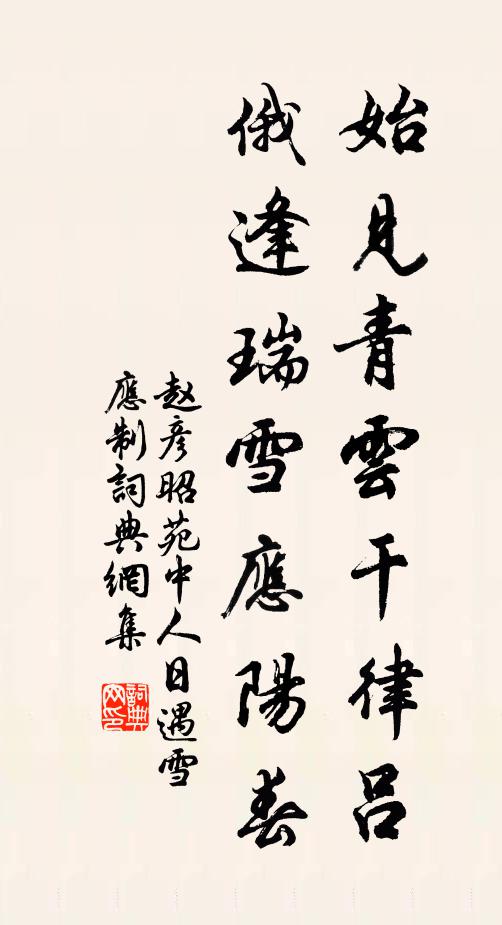 始見青雲干律呂
俄逢瑞雪應陽春
赵彦昭苑中人日遇雪
應制詞典網集
詞典
网印